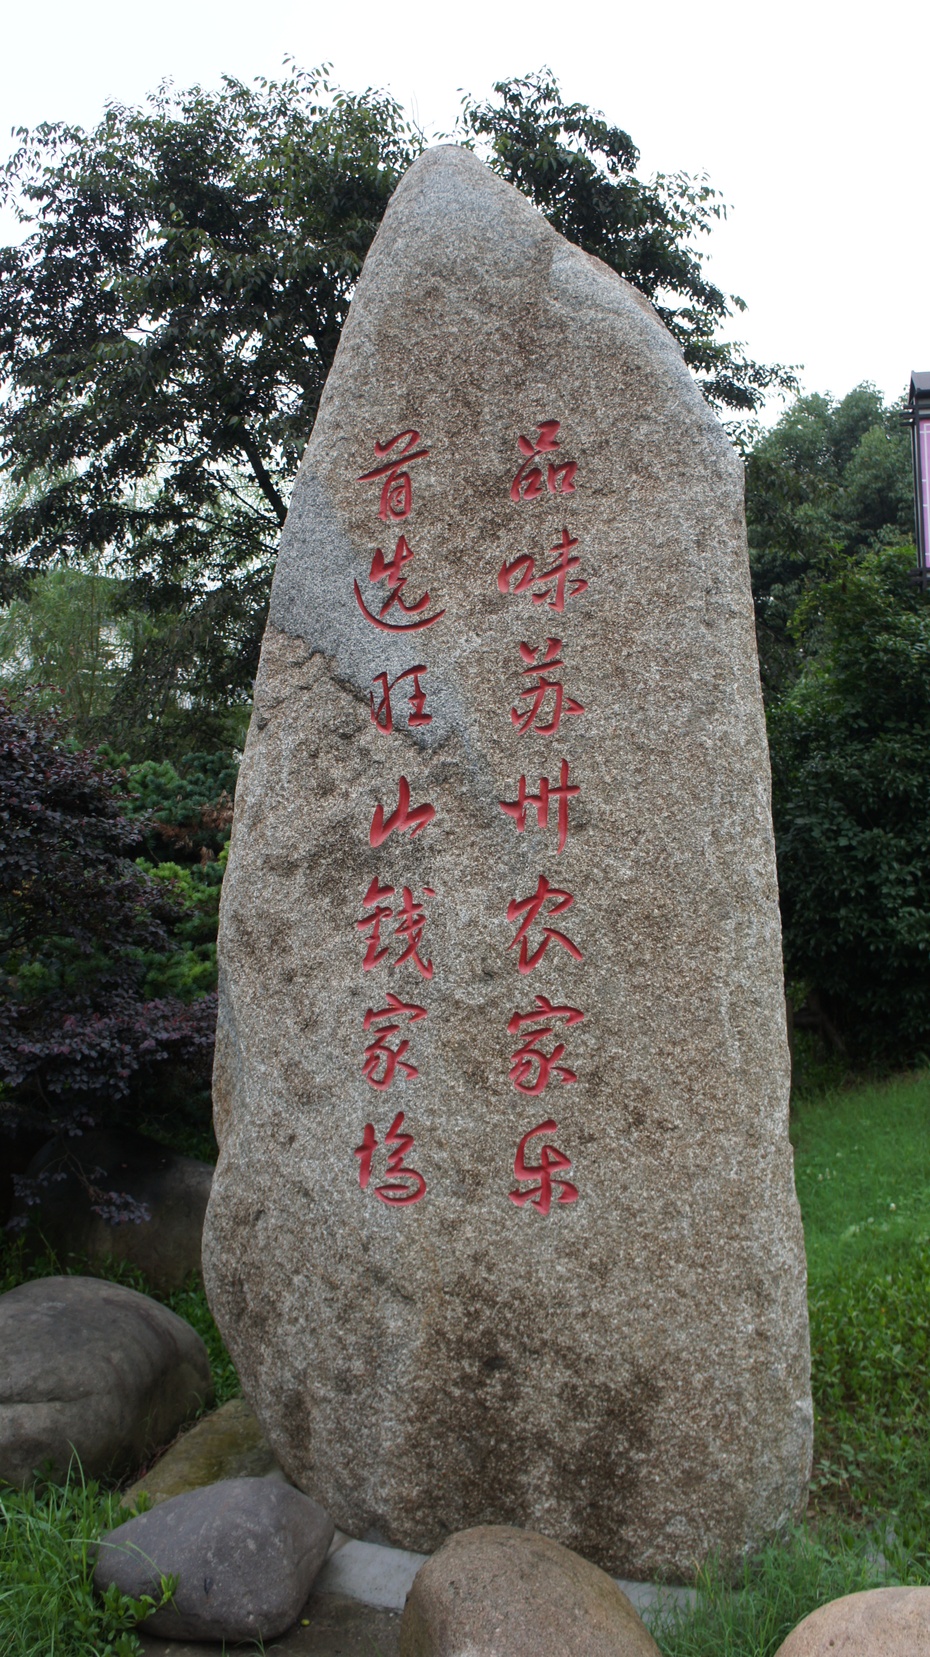 品味苏州农家乐
首选旺山钱家坞